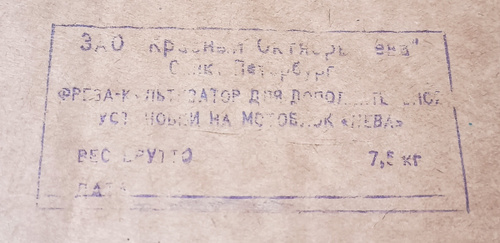 ЗАО "Красный Октябрь Нева"
Санкт Петербург
ФРЕЗА-КУЛЬТИВАТОР ДЛЯ ДОПОЛНИТЕЛЬНОЙ
УСТАНОВКИ НА МОТОБЛОК «НЕВА»
ВЕС БРУТТО 7,5 кг
ДАТА